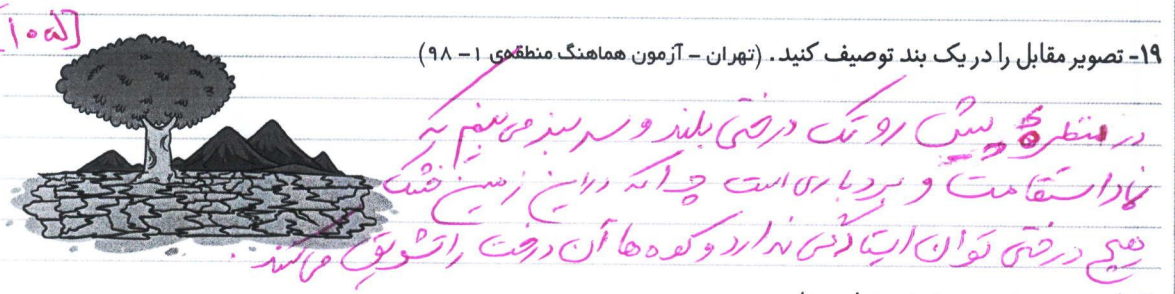 ۱۹- تصویر مقابل را در یک بند توصیف کنید. (تهران - آزمون هماهنگ منطقه‌ی ۱ - ۹۸)
در منظره پیش رو تک درختی بلند و سرسبز می بینم که
نماد استقامت و بردباری است چرا که در این زمین خشک
هیچ درختی توان ایستادگی ندارد و کوه ها آن درخت را تشویق می کنند.